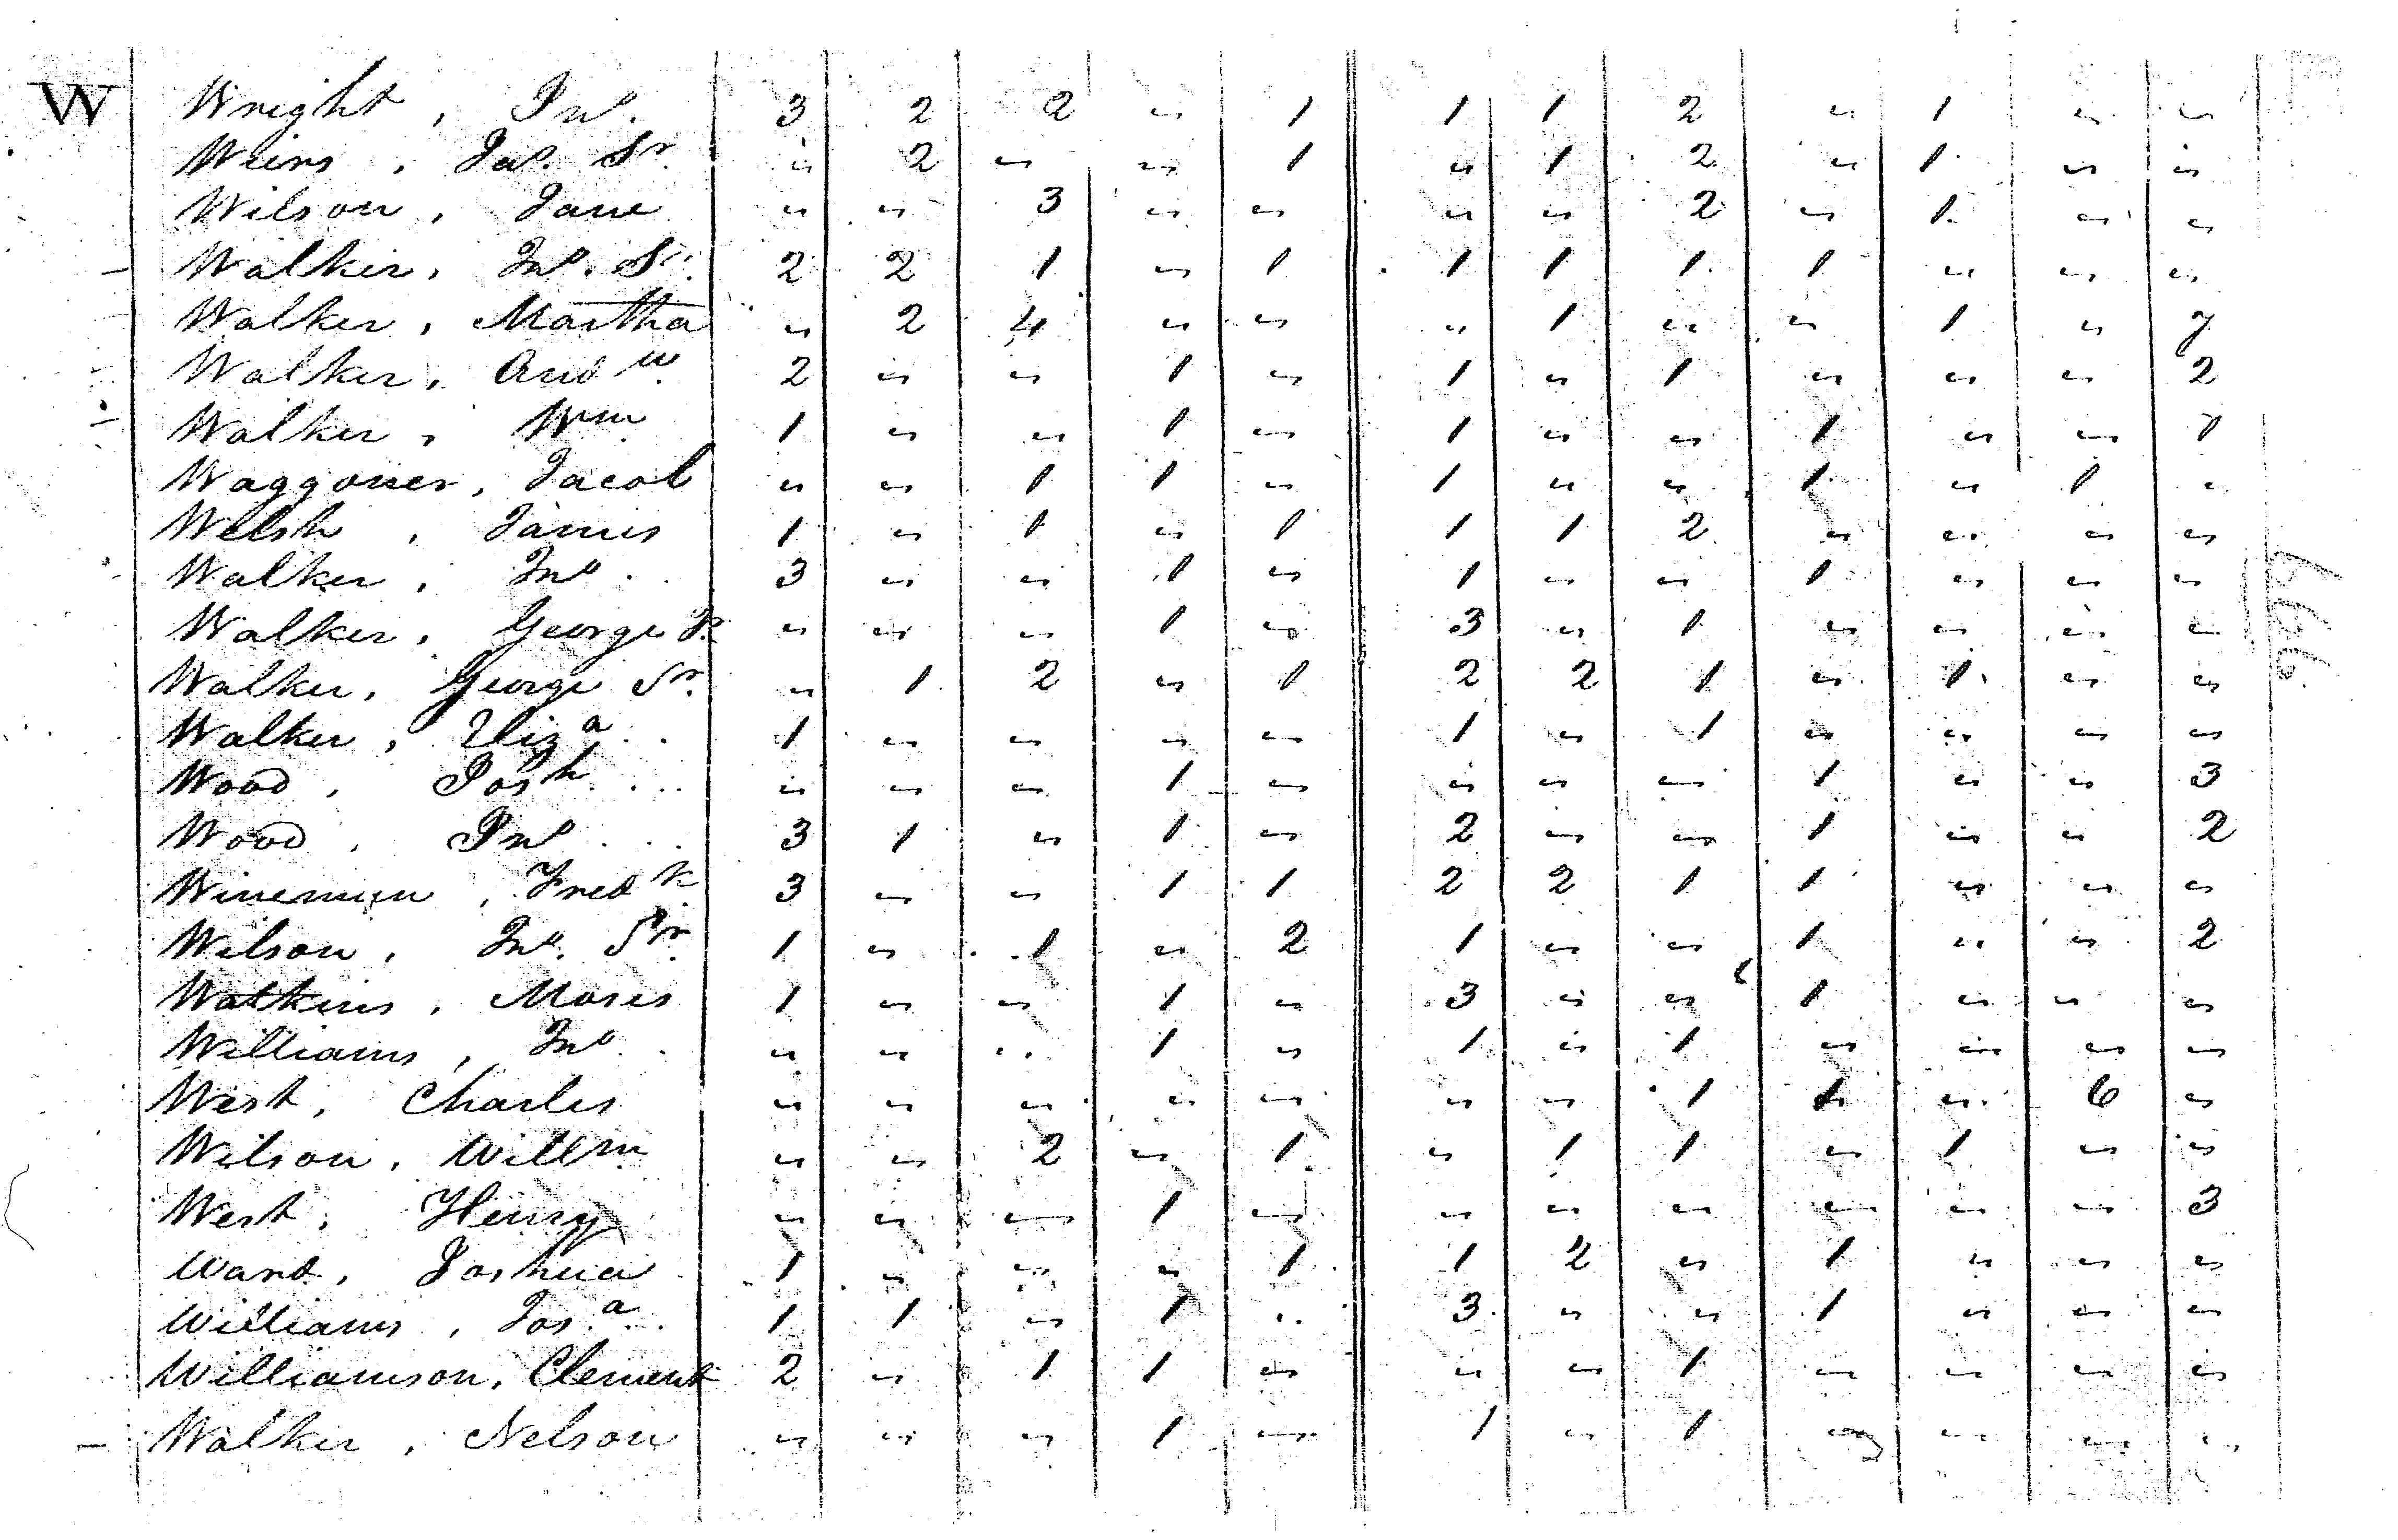 W Wright, Jno. 3 2 2 " 1 1 1 2 " 1 " "
Weirs, Jas. Sr. " 2 " " 1 " 1 2 " 1 " "
Wilson, Jane " " 3 " " " " 2 " 1 " "
Walker, Jno. Sr. 2 2 1 " 1 1 1 1 1 " " "
Walker, Martha " 2 4 " " " 1 " " 1 " 7
Walker, Andw 2 " " 1 " 1 " 1 " " " 2
Walker, Wm 1 " " 1 " 1 " " 1 " " 1
Waggoner, Jacob " " 1 1 " 1 " " 1 " 1 "
Welsh, James 1 " 1 " 1 1 1 2 " " " "
Walker, Jno. 3 " " 1 " 1 " " 1 " " "
Walker, George Jr " " " 1 " 3 " 1 " " " "
Walker, George Sr. " 1 2 " 1 2 2 1 " 1 " "
Walker, Eliza 1 " " " " 1 " 1 " " " "
Wood, Josh " " " 1 " " " " 1 " " 3
Wood, Jno 3 1 " 1 " 2 " " 1 " " 2
Winemun, Fredk 3 " " 1 1 2 2 1 1 " " "
Wilson, Jno. Sr. 1 " 1 " 2 1 " " 1 " " 2
Watkins, Moses 1 " " 1 " 3 " " 1 " " "
Williams, Jno. " " " 1 " 1 " 1 " " " "
West, Charles " " " " " " " 1 1 " 6 "
Wilson, Willm " " 2 " 1 " 1 1 " 1 " "
West, Henry " " " 1 " " " " " " " 3
Ward, Joshua 1 " " " 1 1 2 " 1 " " "
Williams, Josa 1 1 " 1 " 3 " " 1 " " "
Williamson, Clement 2 " 1 1 " " " 1 " " " "
Walker, Nelson " " " 1 " 1 " 1 " " " "